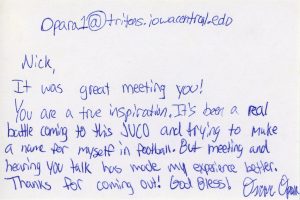 Opara1@tritons.iowacentral.edu
Nick,
It was great meeting you!
You are a true inspiration. It's been a real
battle coming to this JUCO and trying to make
a name for myself in football. But meeting and
hearing you talk has made my experience better.
Thanks for coming out! God Bless! Oscar Opara